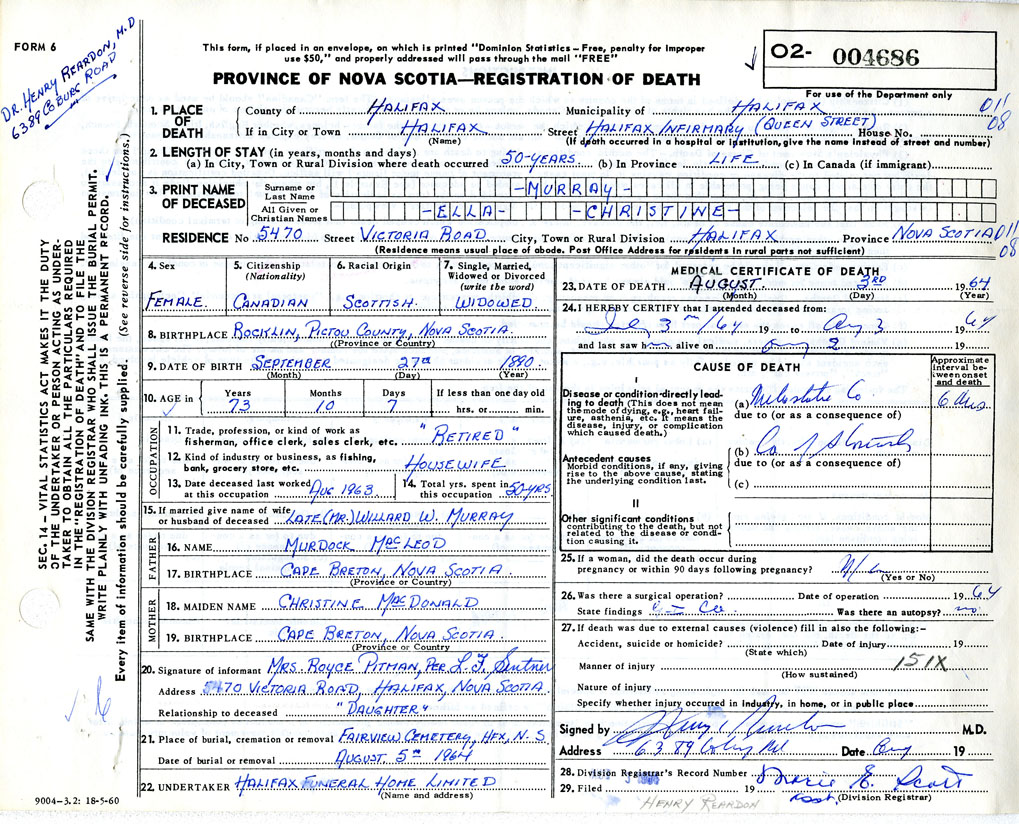 FORM 6
DR. HENRY REARDON, M.D
6389 COBURG ROAD
This form, if placed in an envelope, on which is printed "Dominion Statistics – Free, penalty for improper
use $50," and properly addressed will pass through the mail "FREE"
PROVINCE OF NOVA SCOTIA—REGISTRATION OF DEATH
02- 004686
For use of the Department only
1. PLACE OF DEATH
County of HALIFAX Municipality of HALIFAX 011
If in City or Town HALIFAX Street HALIFAX INFIRMARY (QUEEN STREET) House No. 08
(Name) (If death occurred in a hospital or institution, give the name instead of street and number)
2. LENGTH OF STAY (in years, months and days)
(a) In City, Town or Rural Division where death occurred 50-YEARS (b) In Province LIFE (c) In Canada (if immigrant)
3. PRINT NAME OF DECEASED
Surname or Last Name -MURRAY-
All Given or Christian Names -ELLA- -CHRISTINE-
RESIDENCE No 5470 Street VICTORIA ROAD City, Town or Rural Division HALIFAX Province NOVA SCOTIA 011
(Residence means usual place of abode. Post Office Address for residents in rural parts not sufficient) 08
4. Sex
FEMALE
5. Citizenship
(Nationality)
CANADIAN
6. Racial Origin
SCOTTISH
7. Single, Married,
Widowed or Divorced
(write the word)
WIDOWED
8. BIRTHPLACE ROCKLIN, PICTOU COUNTY, NOVA SCOTIA
(Province or Country)
9. DATE OF BIRTH SEPTEMBER 27TH 1890
(Month) (Day) (Year)
10. AGE in
Years Months Days If less than one day old
73 10 7 hrs. or min.
OCCUPATION
11. Trade, profession, or kind of work as
fisherman, office clerk, sales clerk, etc. "RETIRED"
12. Kind of industry or business, as fishing,
bank, grocery store, etc. HOUSEWIFE
13. Date deceased last worked
at this occupation AUG 1963
14. Total yrs. spent in
this occupation 50-YRS
15. If married give name of wife
or husband of deceased LATE (MR.) WILLARD W. MURRAY
FATHER
16. NAME MURDOCK MACLEOD
17. BIRTHPLACE CAPE BRETON, NOVA SCOTIA
(Province or Country)
MOTHER
18. MAIDEN NAME CHRISTINE MACDONALD
19. BIRTHPLACE CAPE BRETON, NOVA SCOTIA
(Province or Country)
20. Signature of informant MRS. ROYCE PITMAN, PER L. F.
Address 5470 VICTORIA ROAD, HALIFAX, NOVA SCOTIA
Relationship to deceased "DAUGHTER"
21. Place of burial, cremation or removal FAIRVIEW CEMETERY, HFX, N.S.
Date of burial or removal AUGUST 5TH 1964
22. UNDERTAKER HALIFAX FUNERAL HOME LIMITED
(Name and address)
9004-3.2: 18-5-60
MEDICAL CERTIFICATE OF DEATH
23. DATE OF DEATH AUGUST 3RD 1964
(Month) (Day) (Year)
24. I HEREBY CERTIFY that I attended deceased from:
July 3 /64 19 to Aug 3 1964
and last saw h alive on Aug 2 19
CAUSE OF DEATH
Approximate
interval be-
tween onset
and death
I
Disease or condition directly lead-
ing to death (This does not mean
the mode of dying, e.g., heart fail-
ure, asthenia, etc. It means the
disease, injury, or complication
which caused death.)
(a) Metastatic Ca 6
due to (or as a consequence of)
(b) Ca of Stomach
due to (or as a consequence of)
(c)
Antecedent causes
Morbid conditions, if any, giving
rise to the above cause, stating
the underlying condition last.
II
Other significant conditions
contributing to the death, but not
related to the disease or condi-
tion causing it.
25. If a woman, did the death occur during
pregnancy or within 90 days following pregnancy?
(Yes or No)
26. Was there a surgical operation? Date of operation 1964
State findings Was there an autopsy? no
27. If death was due to external causes (violence) fill in also the following:–
Accident, suicide or homicide? Date of injury 19
(State which)
Manner of injury 151X
(How sustained)
Nature of injury
Specify whether injury occurred in industry, in home, or in public place
Signed by Henry Reardon M.D.
Address 6389 Coburg Rd Date Aug 19
28. Division Registrar's Record Number
29. Filed 19 Marie E. Scott
Asst. (Division Registrar)
HENRY REARDON
SEC. 14 – VITAL STATISTICS ACT MAKES IT THE DUTY
OF THE UNDERTAKER OR PERSON ACTING AS UNDER-
TAKER TO OBTAIN ALL THE PARTICULARS REQUIRED
IN THE "REGISTRATION OF DEATH" AND TO FILE THE
SAME WITH THE DIVISION REGISTRAR WHO SHALL ISSUE THE BURIAL PERMIT.
WRITE PLAINLY WITH UNFADING INK. THIS IS A PERMANENT RECORD.
Every item of information should be carefully supplied. (See reverse side for instructions.)